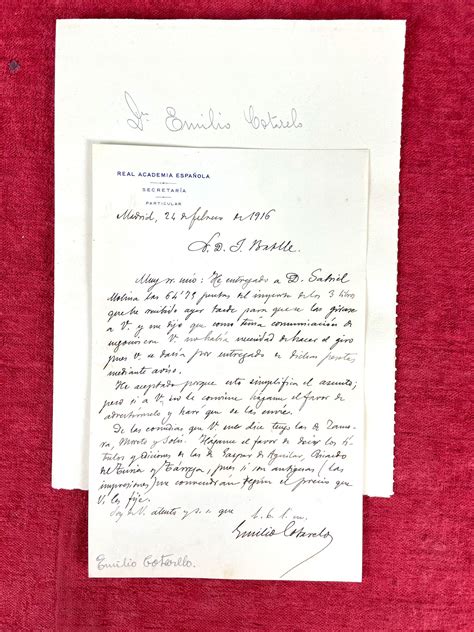 Dr Emilio Cotarelo
REAL ACADEMIA ESPAÑOLA
SECRETARÍA
PARTICULAR
Madrid, 24 de febrero de 1916
S. D. J. Batlle
Muy sr. mio: He entregado a D. Gabriel
Molina las 64'75 pesetas del importe de los 3 libros
que he recibido ayer tarde para que se las girase
a V. y me dijo que como tenía comunicación de
negocios con V. no había necesidad de hacer el giro
pues V. se daría por entregado de dichas pesetas
mediante aviso.
He aceptado porque esto simplifica el asunto;
pero si a V. no le conviene hágame el favor de
advertírmelo y haré que se las envíe.
De las comedias que V. me dice tengo las de Zamora,
Moreto y Solís. Hágame el favor de decir los tí-
tulos y ediciones de las de Gaspar de Aguilar, Ricardo
del Turia y Tárrega, pues si son antiguas (las
impresiones) me convendrán según el precio que
V. les fije.
Soy de V. atento y s. s. que
b. l. m.
Emilio Cotarelo
Emilio Cotarello.